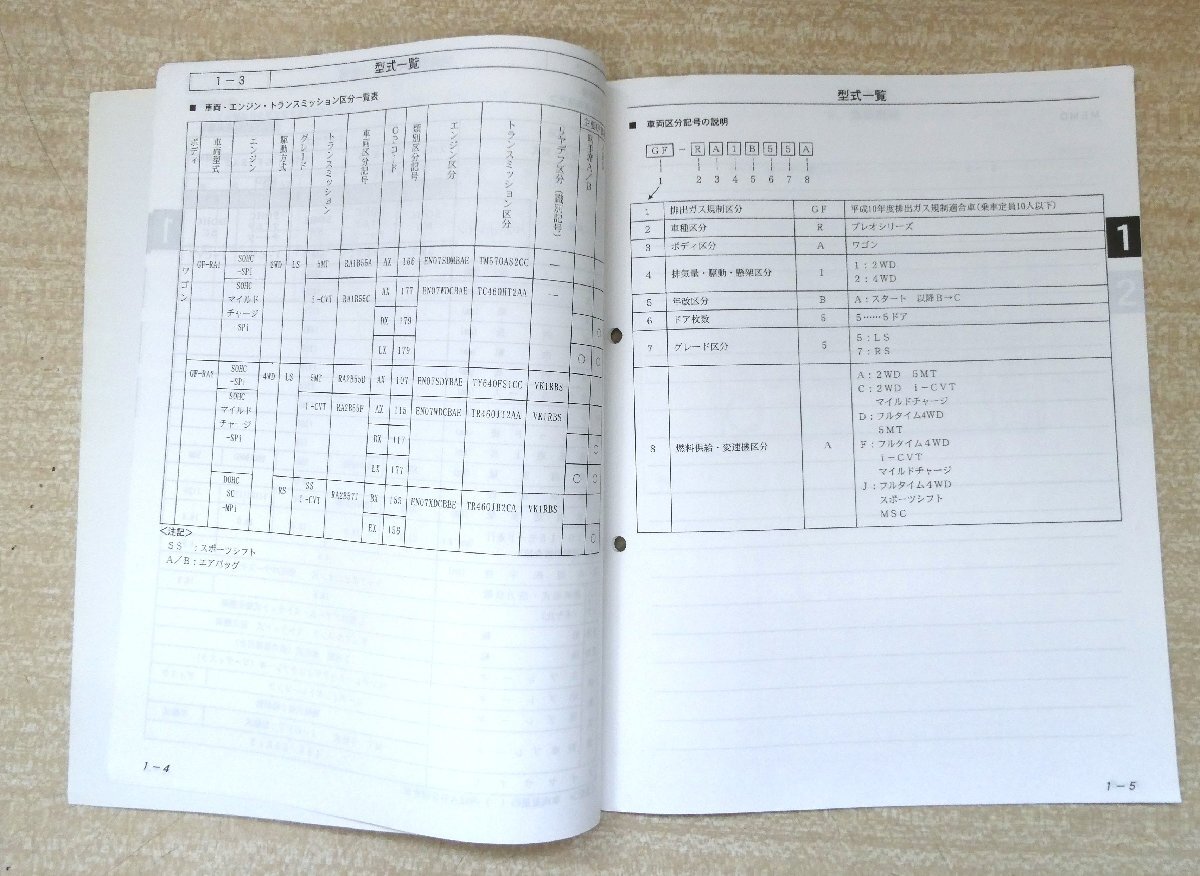 1－3 型式一覧
■ 車両・エンジン・トランスミッション区分一覧表
ボディ 車両型式 エンジン 駆動方式 グレード トランスミッション 車両区分記号 OPコード 類別区分記号 エンジン区分 トランスミッション区分 リヤデフ区分（識別記号）
ワゴン GF-RA1 SOHC -SPi 2WD LS 5MT RA1B55A AX 166 EN07SDMBAE TM570AS2CC —
SOHC マイルドチャージ SPi i-CVT RA1B55C AX 177 EN07WDCBAE TC460HT2AA —
DX 179 ○
LX 179 ○ ○
GF-RA2 SOHC -SPi 4WD LS 5MT RA2B55D AX 107 EN07SDYBAE TY640FS1CC VK1RBS
SOHC マイルドチャージ -SPi i-CVT RA2B55F AX 115 EN07WDCBAE TR460JT2AA VK1RBS
DX 117 ○
LX 177 ○ ○
DOHC SC -MPi RS SS i-CVT RA2B57J DX 155 EN07XDCBBE TR460JB2CA VK1RBS
EX 155 ○
＜注記＞
SS ：スポーツシフト
A／B：エアバッグ
1－4
型式一覧
■ 車両区分記号の説明
GF － R A 1 B 5 5 A
1 2 3 4 5 6 7 8
1 排出ガス規制区分 GF 平成10年度排出ガス規制適合車（乗車定員10人以下）
2 車種区分 R プレオシリーズ
3 ボディ区分 A ワゴン
4 排気量・駆動・懸架区分 1 1：2WD
2：4WD
5 年改区分 B A：スタート 以降B→C
6 ドア枚数 5 5……5ドア
7 グレード区分 5 5：LS
7：RS
8 燃料供給・変速機区分 A A：2WD 5MT
C：2WD i－CVT
マイルドチャージ
D：フルタイム4WD
5MT
F：フルタイム4WD
i－CVT
マイルドチャージ
J：フルタイム4WD
スポーツシフト
MSC
1
1－5